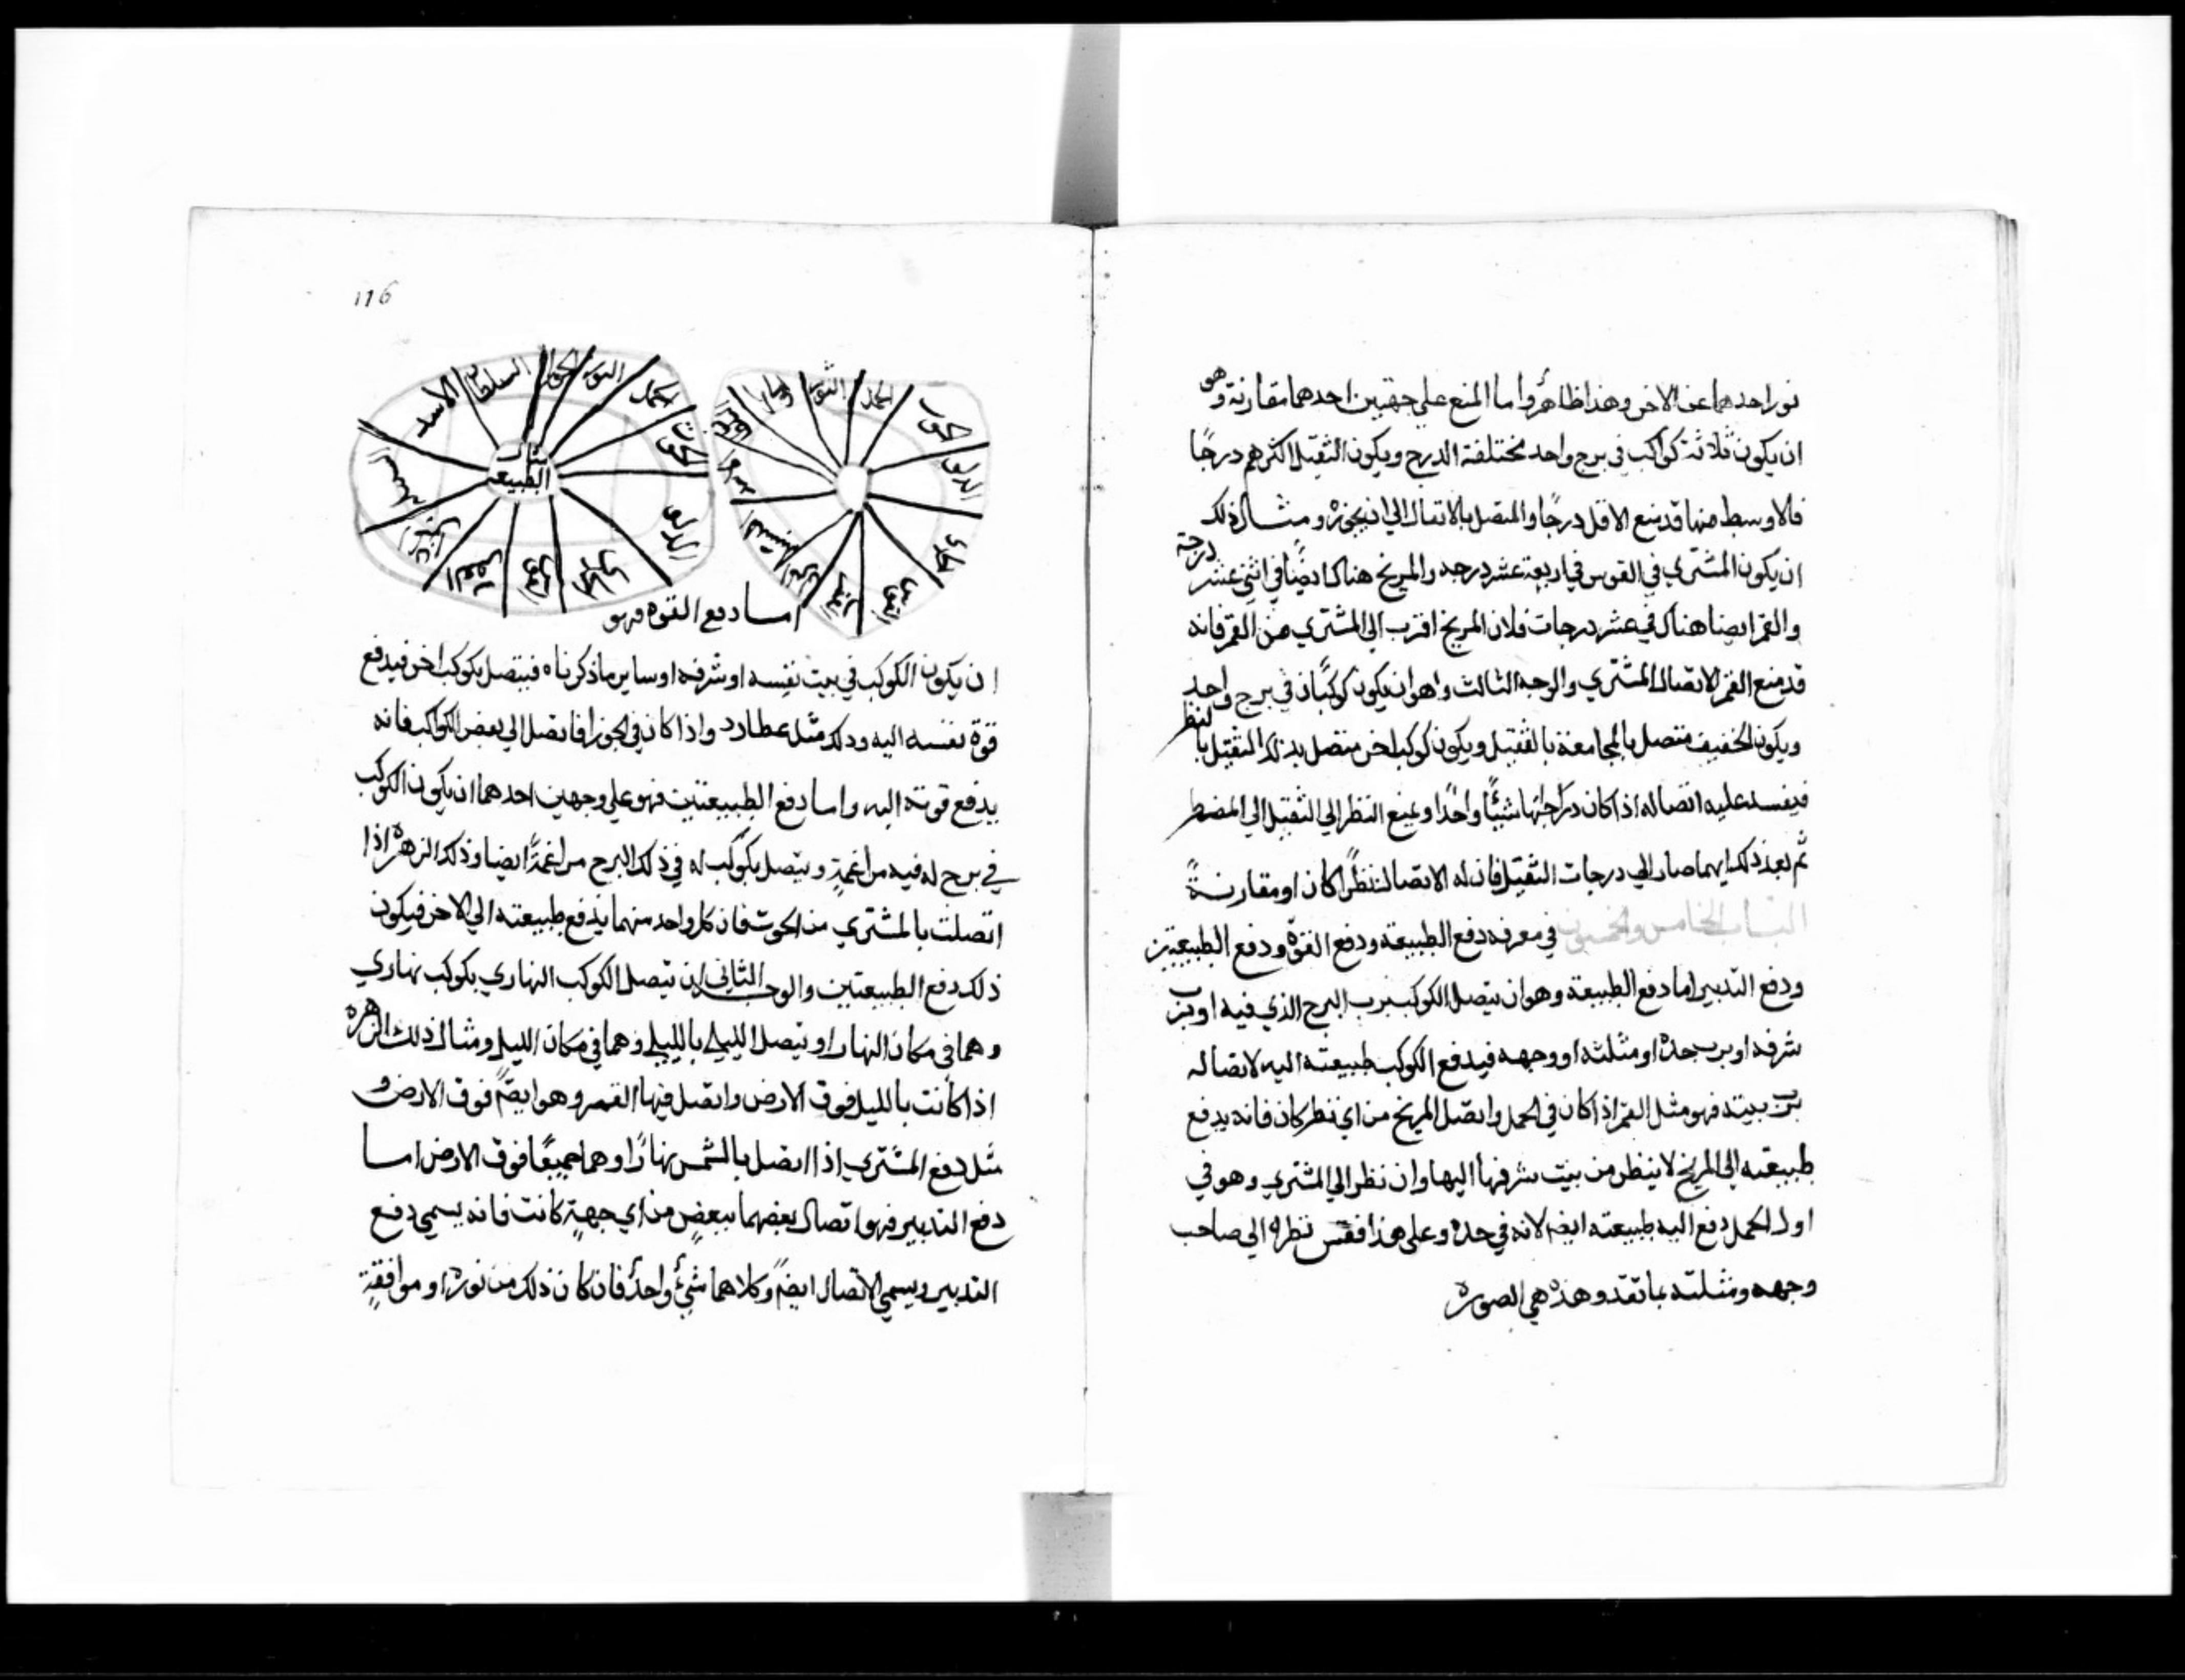 نور احدهما عن الاخر وهذا ظاهر واما المنع على جهتين احدهما مقارنة وهو
ان يكون ثلاثة كواكب في برج واحد مختلفة الدرج ويكون الثقيل اكثرهم درجا
فالاوسط منها قد منع الاقل درجا والمتصل بالاتصال الى ان يجوزه ومثال ذلك
ان يكون المشتري في القوس في اربعة عشر درجه والمريخ هناك ايضا في اثني عشر درجة
والقمر ايضا هناك في عشر درجات فلان المريخ اقرب الى المشتري من القمر فانه
قد منع القمر الاتصال المشتري والوجه الثالث واهو ان يكون كوكبان في برج واحد
ويكون الخفيف متصل بالمجامعة بالثقيل ويكون كوكب اخر متصل بذلك الثقيل بالنظر
فيفسد عليه اتصاله اذا كان دراجتها شيئا واحدا ويمنع النظر الى الثقيل الى
ثم بعد ذلك ايهما صار الي درجات الثقيل فان له الاتصال نظرا كان او مقارنة
الباب الخامس والخمسون في معرفه دفع الطبيعة ودفع القوة ودفع الطبيعتين
ودفع التدبير اما دفع الطبيعة وهو ان يتصل الكوكب برب البرج الذي فيه او برب
شرفه او برب حده او مثلثه او وجهه فيدفع الكوكب طبيعته اليه لاتصاله
برب بيته فهو مثل القمر اذا كان في الحمل واتصل المريخ من اي نظر كان فانه يدفع
طبيعته الى المريخ لا ينظر من بيت شرفها اليها وان نظر الي المشتري وهو في
اول الحمل دفع اليه طبيعته ايضا لانه في حده وعلى هذا فقس نظره الي صاحب
وجهه ومثلثه بما تقد وهذه هي الصورة
116
الحمل
الثور
الجوزا
السرطان
الاسد
العقرب
القوس
الجدي
الدلو
الحوت
مثال
الطبيعه
الحمل
الثور
السنبله
القوس
الجدي
الدلو
حوت
اما دفع القوه فهو
ان يكون الكوكب في بيت نفسه او شرفه او ساير ما ذكرناه فيتصل بكوكب اخر فيدفع
قوة نفسه اليه وذلك مثل عطارد واذا كان في الجوزا فاتصل الي بعض الكواكب فانه
يدفع قوته اليه واما دفع الطبيعتين فهو على وجهين احدهما ان يكون الكوكب
في برج له فيه مزاغمة ويتصل بكوكب له في ذلك البرج مزاغمة ايضا وذلك الزهرة اذا
اتصلت بالمشتري من الحوت فان كل واحد منهما يدفع طبيعته الي الاخر فيكون
ذلك دفع الطبيعتين والوجه الثاني ان يتصل الكوكب النهاري بكوكب نهاري
وهما في مكان النهار او يتصل الليلي بالليلي وهما في مكان الليل ومثال ذلك الزهره
اذا كانت بالليل فوق الارض واتصل فيها القمر وهو ايضا فوق الارض و
مثل دفع المشتري اذا اتصل بالشمس نهارا وهما جميعا فوق الارض اما
دفع التدبير فهو اتصال بعضهما ببعض من اي جهة كانت فانه يسمى دفع
التدبير ويسمي الاتصال ايضا وكلاهما شيئ واحد فان كان ذلك من نوره او موافقة